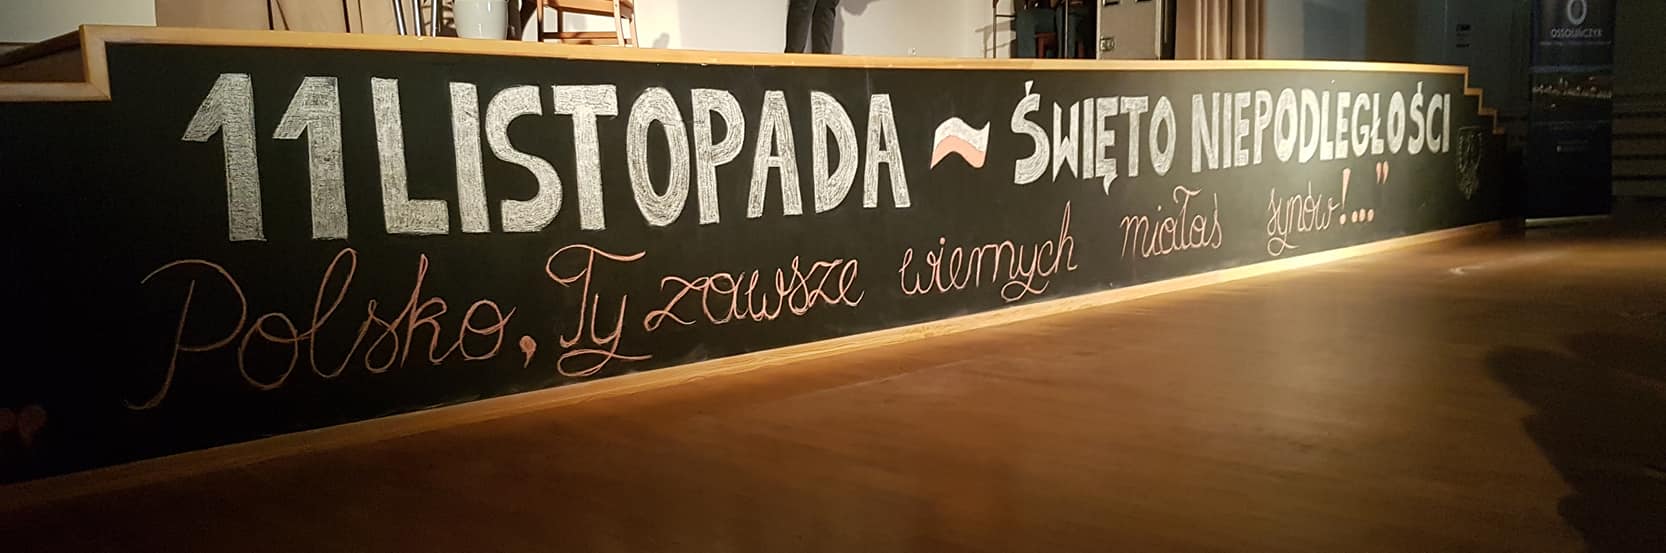 11 LISTOPADA ~ ŚWIĘTO NIEPODLEGŁOŚCI
"Polsko, Ty zawsze wiernych miałaś synów!..."
OSSOLIŃCZYK